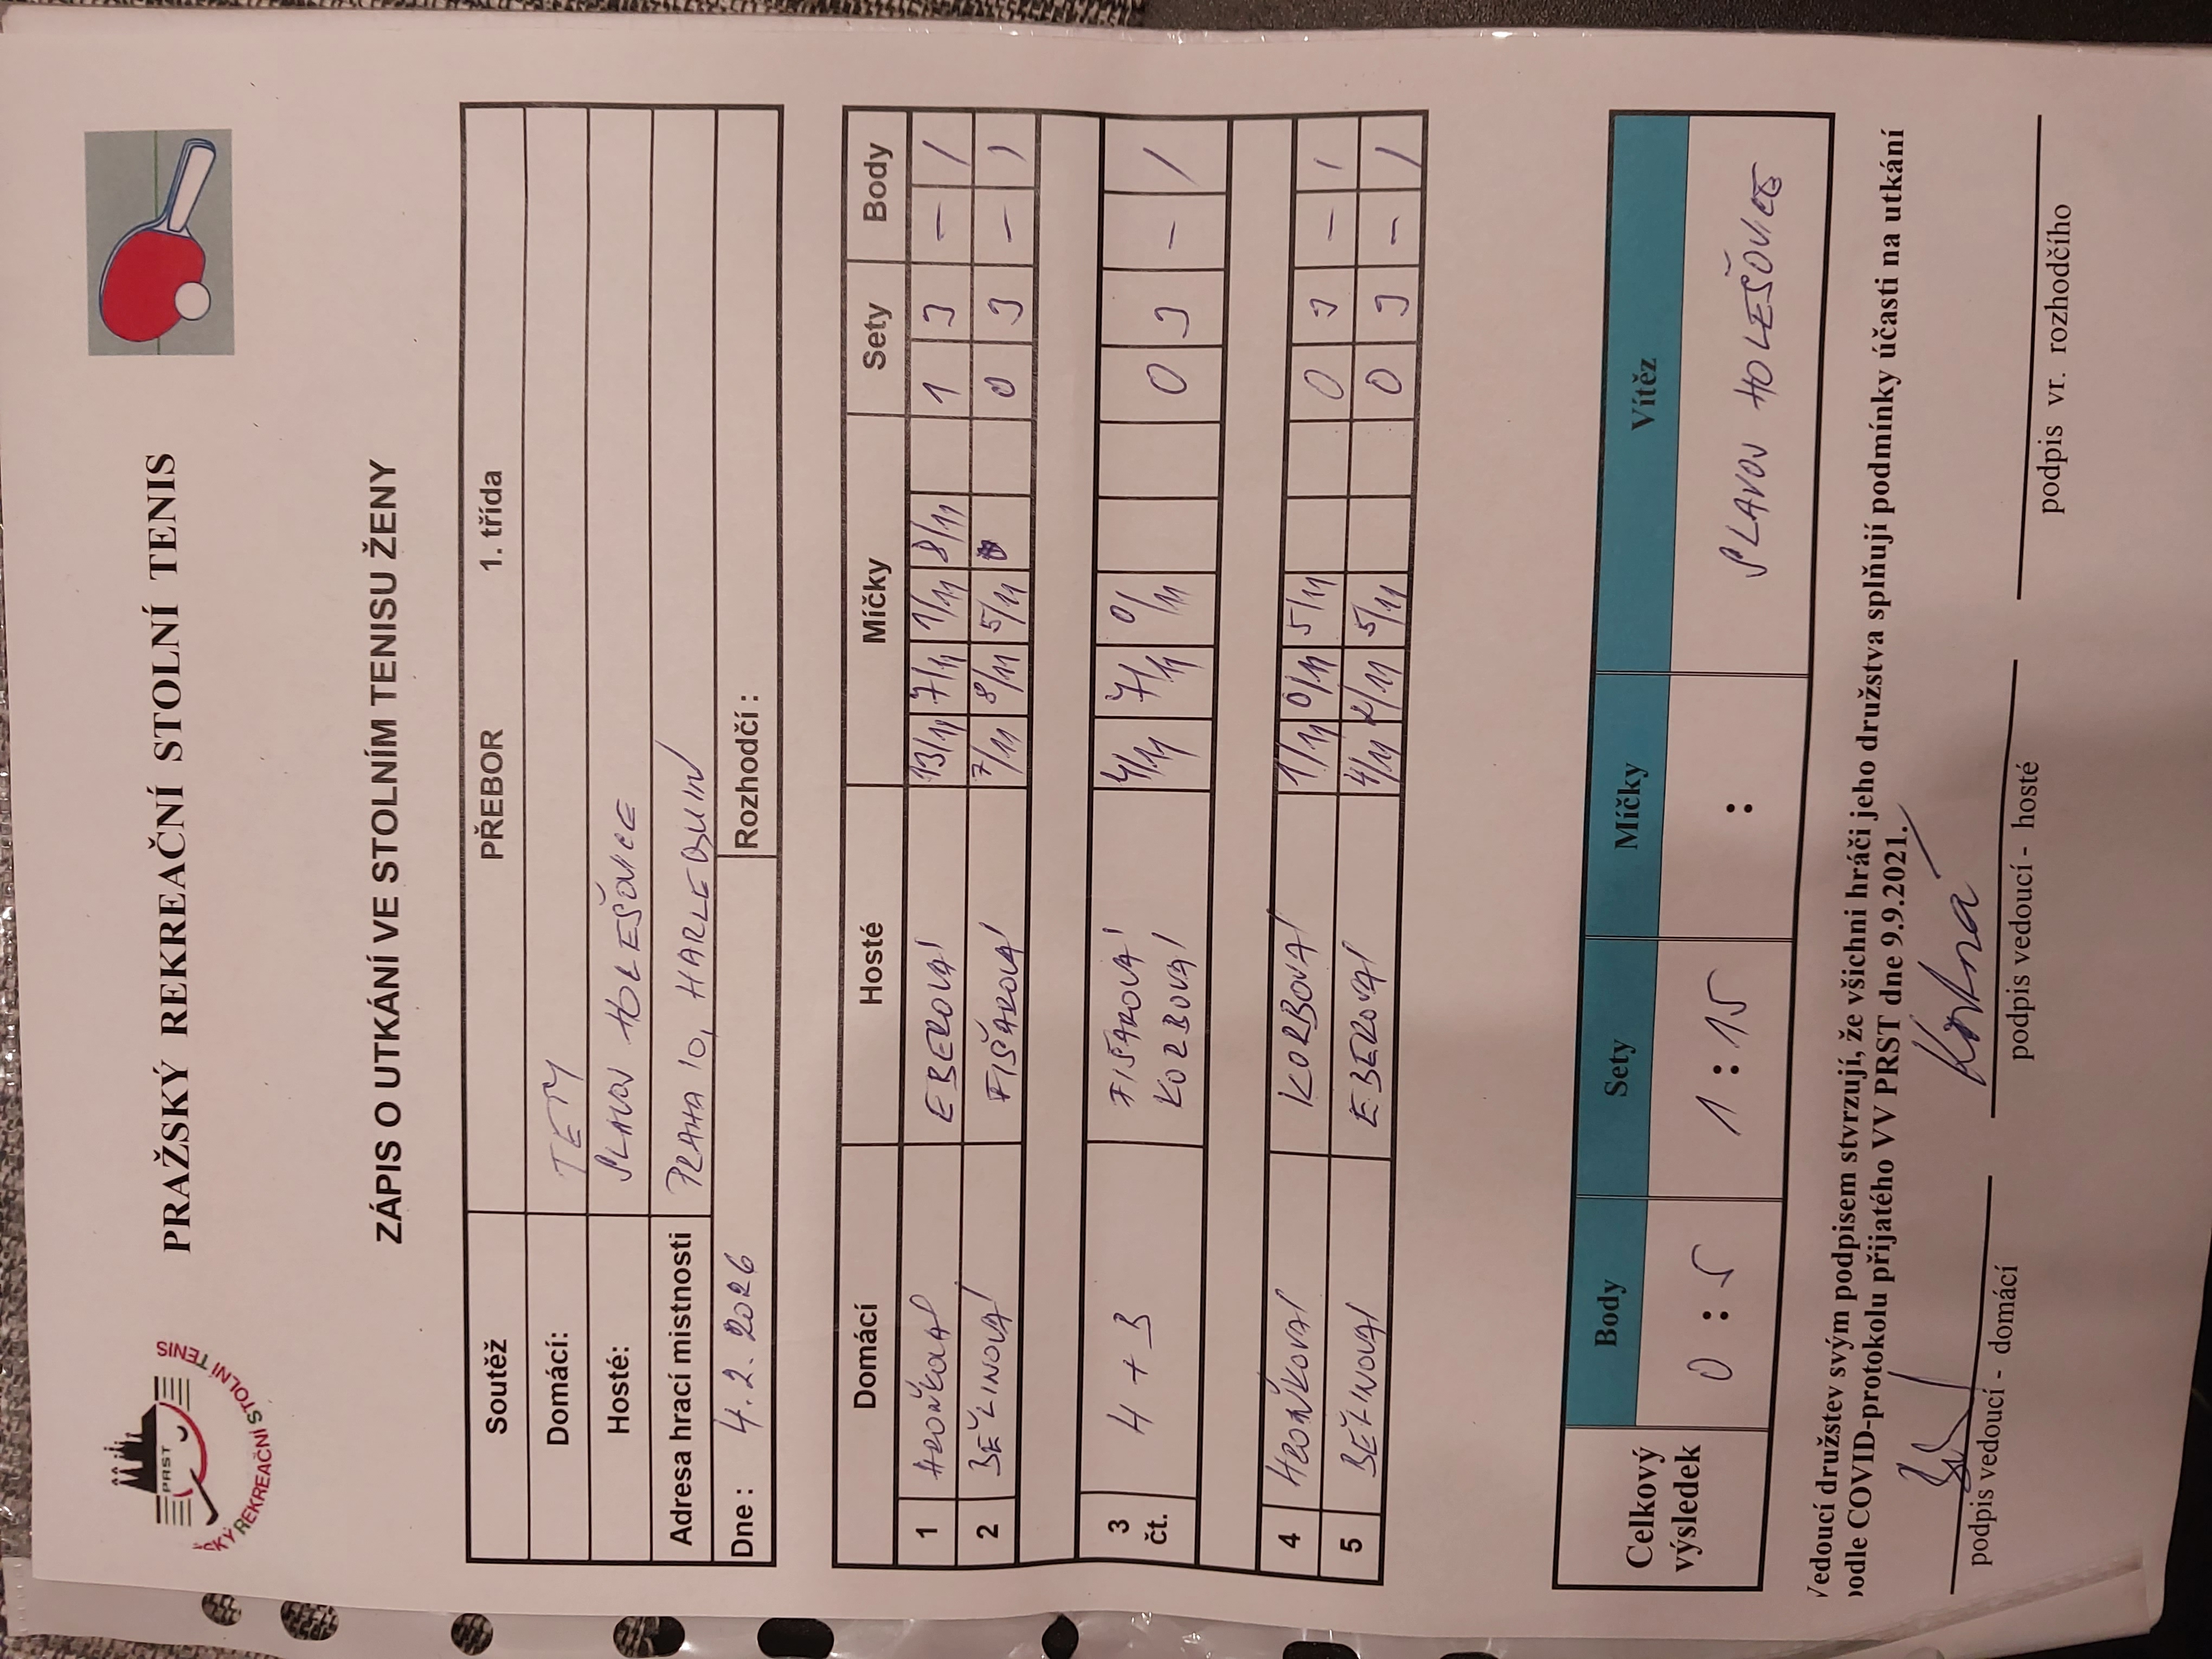 PRAŽSKÝ REKREAČNÍ STOLNÍ TENIS
PRST
SKÝ REKREAČNÍ STOLNÍ TENIS
ZÁPIS O UTKÁNÍ VE STOLNÍM TENISU ŽENY
Soutěž PŘEBOR 1. třída
Domácí: TETY
Hosté: SLAVOJ HOLEŠOVICE
Adresa hrací místnosti PRAHA 10, HARLEQUIN
Dne : 4.2.2026 Rozhodčí :
Domácí Hosté Míčky Sety Body
1 HROŇKOVÁ EBEROVÁ 13/11 7/11 1/11 8/11 1 3 – /
2 BEŽINOVÁ FIŠÁROVÁ 7/11 8/11 5/11 0 3 – /
3 čt. 4 + 3 FIŠÁROVÁ KORBOVÁ 4/11 7/11 0/11 0 3 – /
4 HROŇKOVÁ KORBOVÁ 1/11 0/11 5/11 0 3 – /
5 BEŽINOVÁ EBEROVÁ 4/11 2/11 5/11 0 3 – /
Celkový výsledek Body Sety Míčky Vítěz
0 : 5 1 : 15 : SLAVOJ HOLEŠOVICE
Vedoucí družstev svým podpisem stvrzují, že všichni hráči jeho družstva splňují podmínky účasti na utkání
podle COVID-protokolu přijatého VV PRST dne 9.9.2021.
podpis vedoucí - domácí podpis vedoucí - hosté podpis vr. rozhodčího